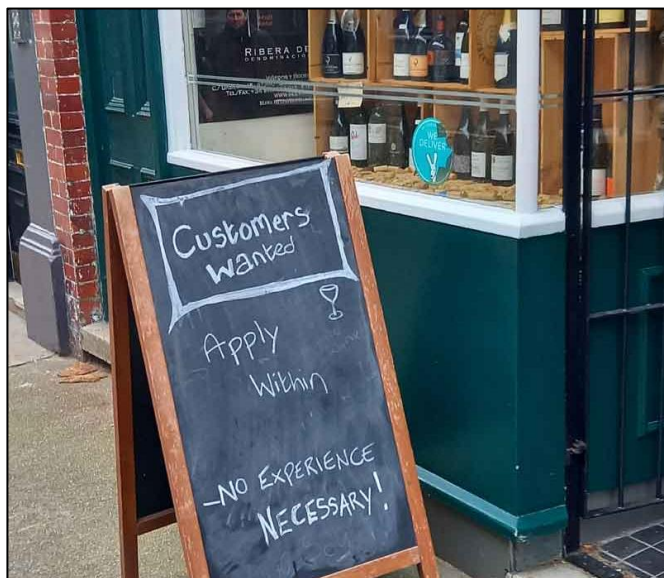 RIBERA DE
WE
DELIVER
Customers
Wanted
Apply
Within
-NO EXPERIENCE
NECESSARY!